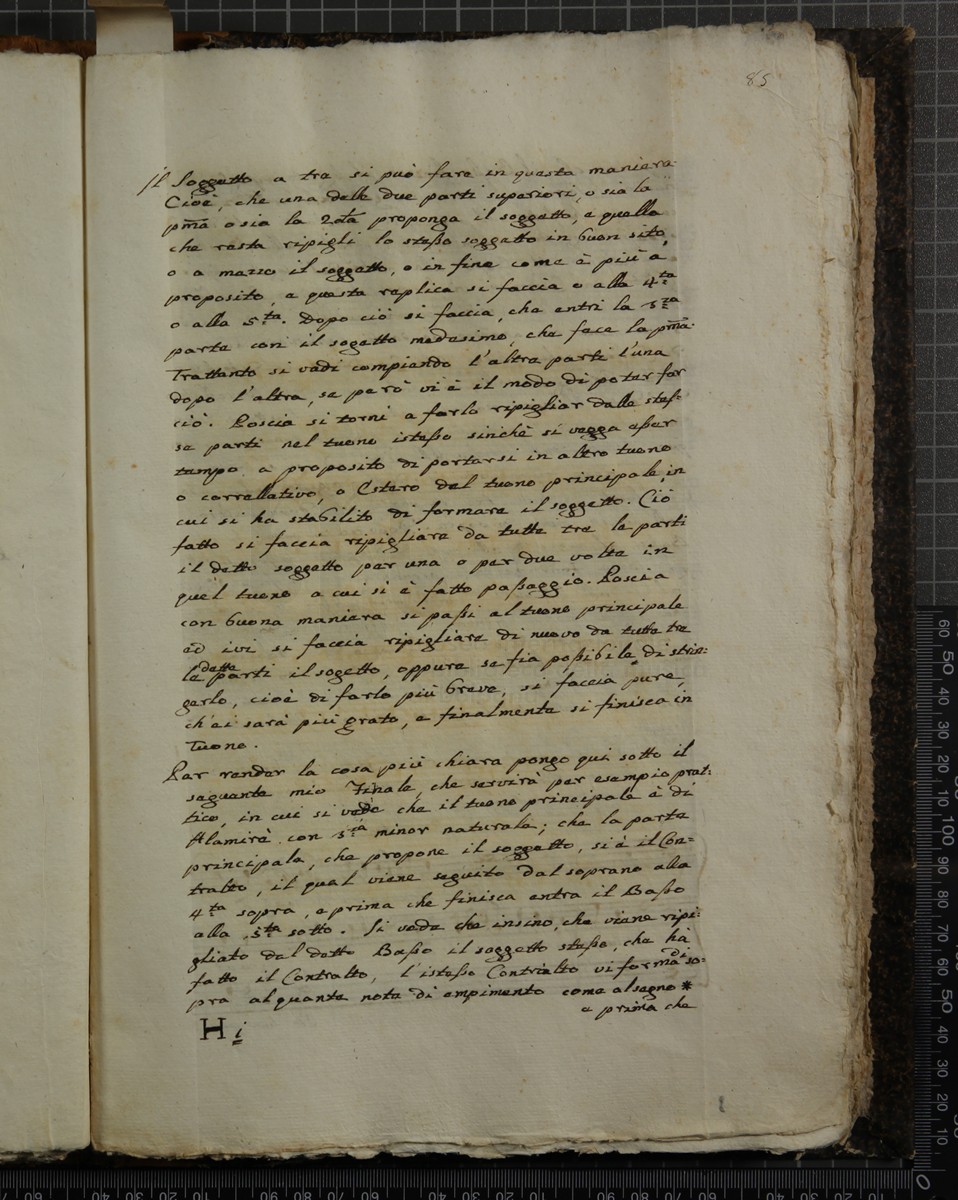 85
Il Soggetto a tre si può fare in questa maniera.
Cioè, che una delle due parti superiori, o sia la
pm̃a o sia la 2da proponga il soggetto, e quella
che resta ripigli lo steßo soggetto in buon sito,
o a mezzo il soggetto, o in fine come è più a
proposito, e questa replica si faccia o alla 4.ta
o alla 5.ta. Dopo ciò si faccia, che entri la 3.za
parte con il sogetto medesimo, che fece la pm̃a.
Trattanto si vadi compiendo l'altre parti l'una
dopo l'altra, se però vi è il modo di poter far
ciò. Poscia si torni a farlo ripigliar dalle stes-
se parti nel tuono isteßo sinchè si vegga eßer
tempo a proposito di portarsi in altro tuono
o correllativo, o Estero del tuono principale, in
cui si ha stabilito di formare il soggetto. Ciò
fatto si faccia ripigliare da tutte tre le parti
il detto soggetto per una o per due volte in
quel tuono a cui si è fatto paßaggio. Poscia
con buona maniera si paßi al tuono principale
ed ivi si faccia ripigliare di nuovo da tutte tre
le dette parti il sogetto, oppure se fia poßibile, di strin:
gerlo, cioè di farlo più breve, si faccia pure,
ch'ei sarà più grato, e finalmente si finisca in
Tuono.
Per render la cosa più chiara pongo qui sotto il
seguente mio Finale, che servirà per esempio prat:
tico, in cui si vede che il tuono principale è di
Alamirè con 3.za minor naturale; che la parte
principale, che propone il soggetto, si è il Con=
tralto, il qual viene seguito dal soprano alla
4.ta sopra, e prima che finisca entra il Baßo
alla 5.ta sotto. Si vede che insino, che viene ripi:
gliato dal detto Baßo il soggetto steßo, che hà
fatto il Contralto, l'isteßo Contralto vi forma di so:
pra alquante note di empimento come al segno *
e prima che
H i